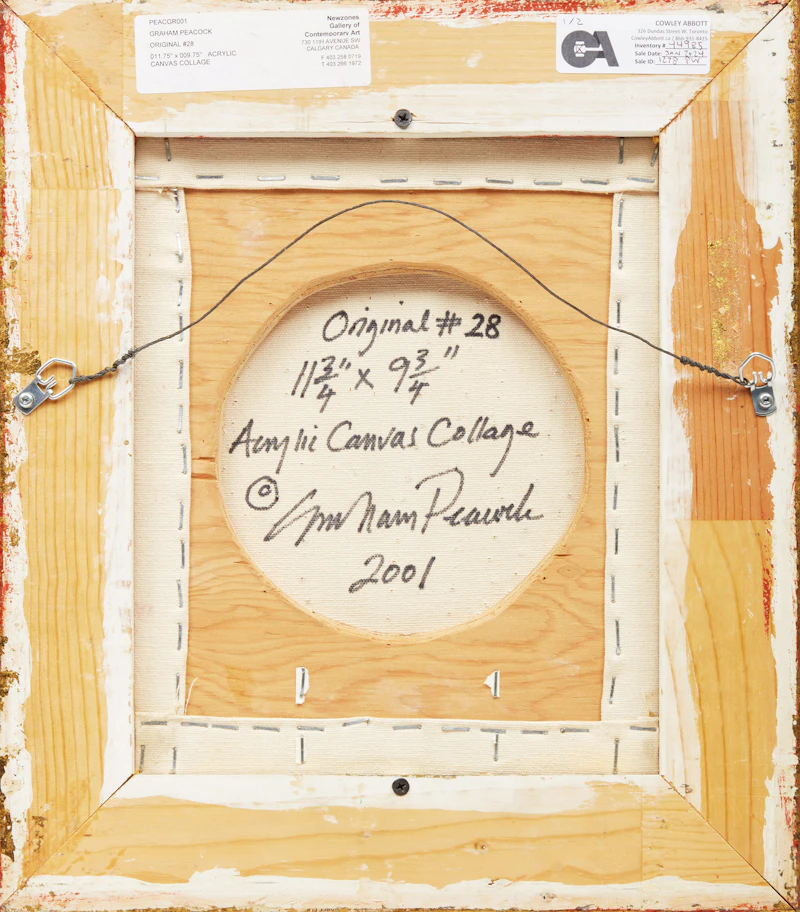 PEACGR001
GRAHAM PEACOCK
ORIGINAL #28
011.75" x 009.75" ACRYLIC
CANVAS COLLAGE
Newzones
Gallery of
Contemporary Art
730 11th AVENUE SW
CALGARY CANADA
F 403 258 0719
T 403 266 1972
1/2
CA
COWLEY ABBOTT
326 Dundas Street W, Toronto
CowleyAbbott.ca
Inventory# 44985
Sale Date: Jan 2024
Sale ID:
Original # 28
11 3/4" x 9 3/4"
Acrylic Canvas Collage
© Graham Peacock
2001